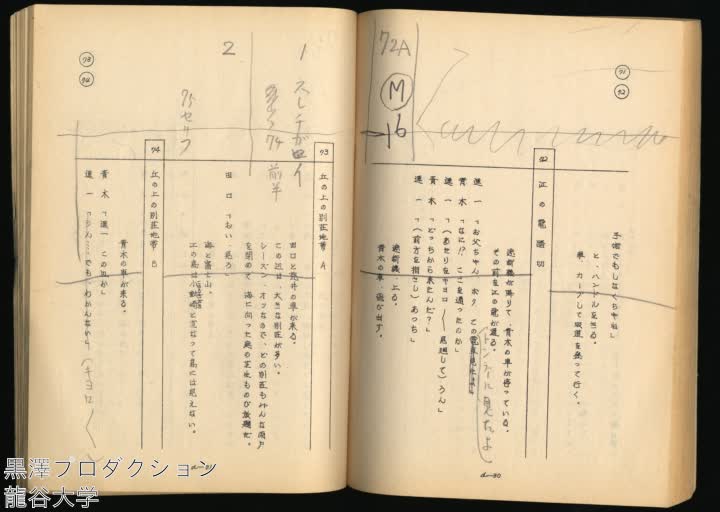 91
92
手帖でもしなくちやね」
と、ハンドルを切る。
車、カーブして坂道を登って行く。
72A
M
16
92 江の電踏切
遮断機が降りて、青木の車が停っている。
その前を江の電が通る。
進一「お父ちゃん、ボク、この
トンネル見たよ
青木「なに!? ここを通ったのか」
進一「(あたりをキョロ〱見廻して)うん」
青木「どっちから来たんだ?」
進一「(前方を指さし)あっち」
遮断機、上る。
青木の車、飛び出す。
d—90
1 スレチガイ
74 前半
2
75 セリフ
93
94
93 丘の上の別荘地帯 A
田口と荒井の車が来る。
この辺は、大きな別荘が多い。
シーズン・オフなので、どの別荘もみんな雨戸
を閉めて、海に向った庭の芝生ものび放題だ。
田口「おい、見ろ」
海と富士山。
江の島は小動崎と重なって島には見えない。
94 丘の上の別荘地帯 B
青木の車が来る。
青木「進一、この辺か」
進一「うん……でも、わかんないや」
(キョロ〱)
d—91
黒澤プロダクション
龍谷大学